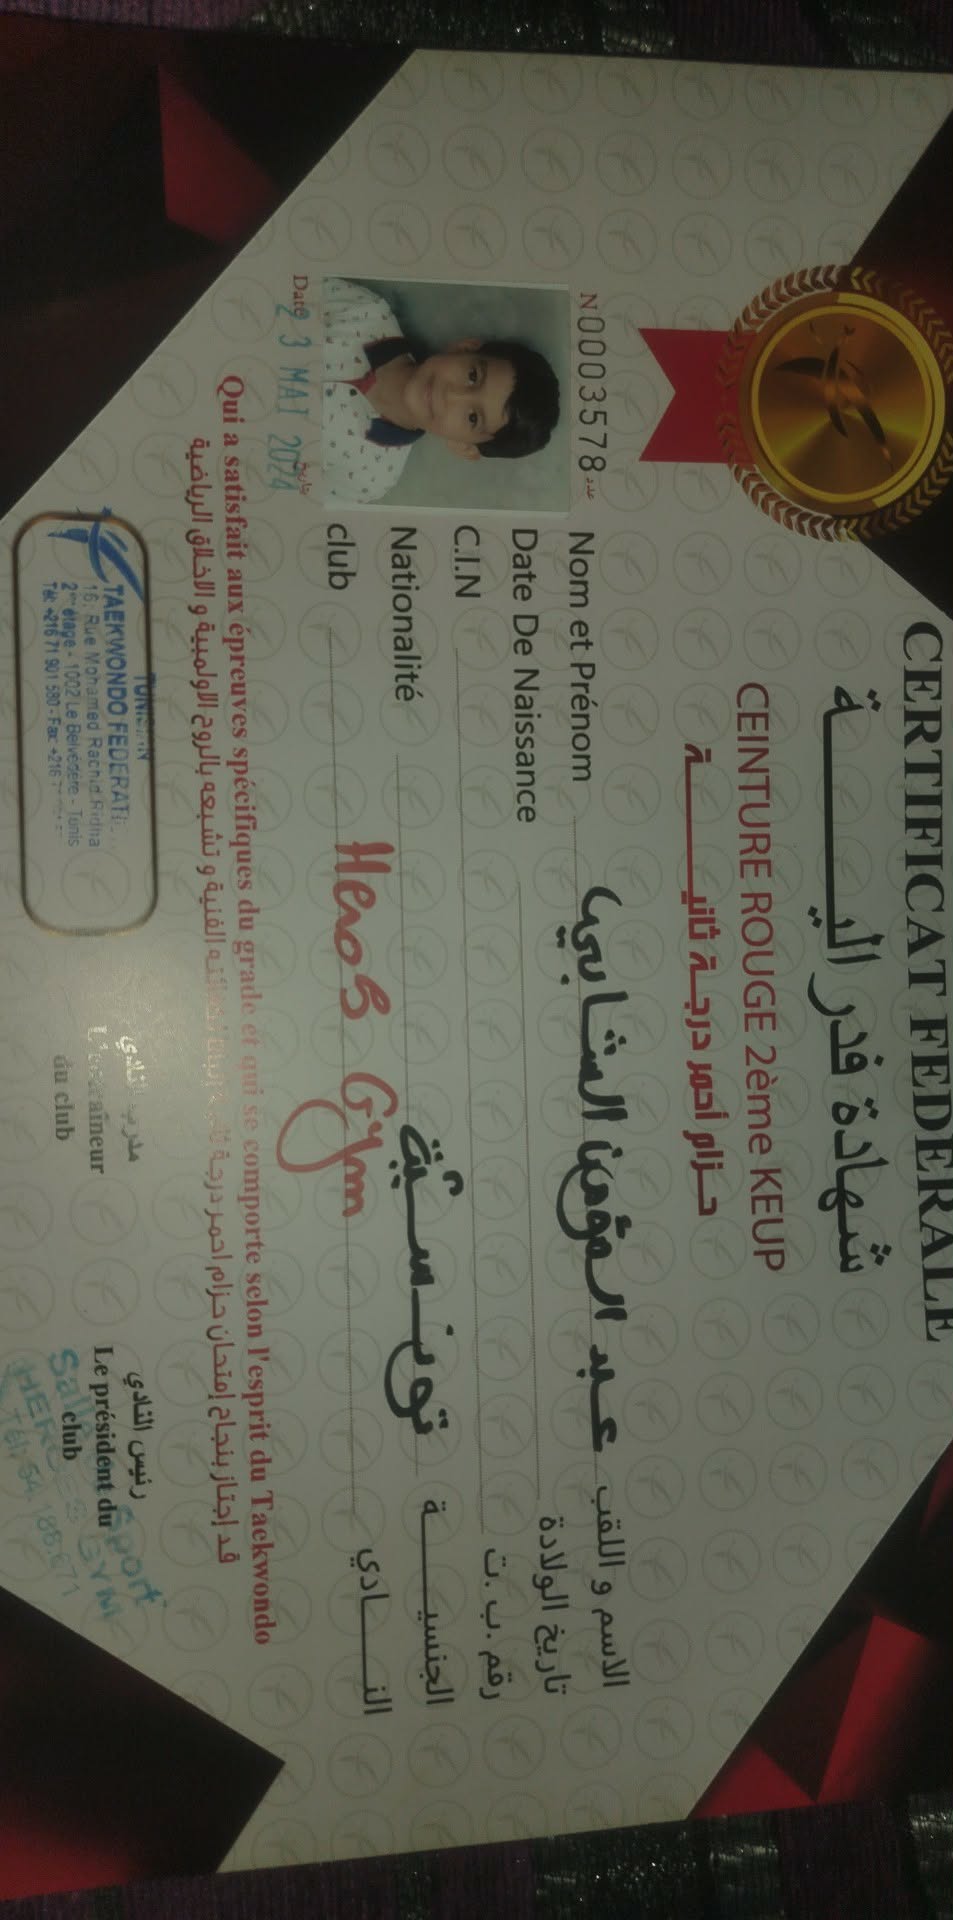 CERTIFICAT FEDERALE
شهادة فدرالية
CEINTURE ROUGE 2ème KEUP
حزام أحمر درجة ثانية
N0003578 عدد
Nom et Prénom عبد المؤمن الشابي الاسم و اللقب
Date De Naissance تاريخ الولادة
C.I.N رقم ب.ت.
Nationalité تونسية الجنسية
club Heros Gym النادي
Date 23 MAI 2024 تاريخ
Qui a satisfait aux épreuves spécifiques du grade et qui se comporte selon l'esprit du Taekwondo
قد إجتاز بنجاح إمتحان حزام احمر درجة الفنية و تشبعه بالروح الاولمبية و الاخلاق الرياضية
TUNISIAN
TAEKWONDO FEDERATI
16, Rue Mohamed Rachid Ridha
2ème étage - 1002 Le Belvédère - Tunis
Tél: +216 71 901 580 - Fax: +216
مدرب النادي
L'entraîneur
du club
رئيس النادي
Le président du
club
Salle Sport
HEROES GYM
Tél: 54.188.671